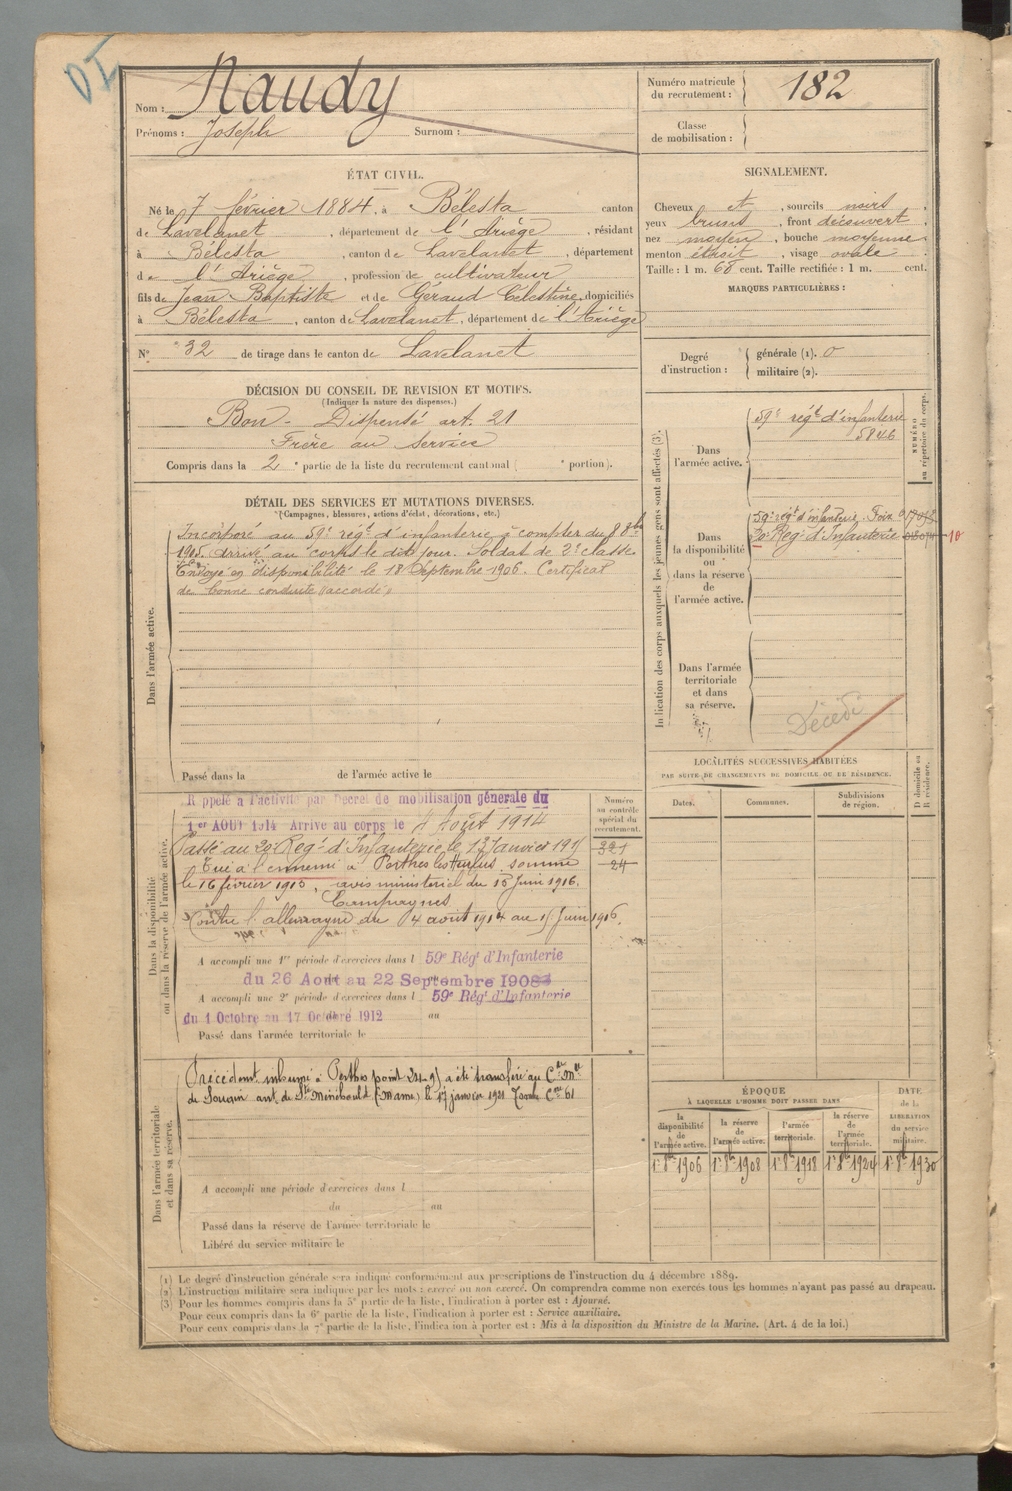 Nom : Naudy
Prénoms : Joseph Surnom :
Numéro matricule du recrutement : 182
Classe de mobilisation :
ÉTAT CIVIL.
Né le 7 février 1884, à Bélesta canton
de Lavelanet, département de l'Ariège, résidant
à Bélesta, canton de Lavelanet, département
de l'Ariège, profession de cultivateur
fils de Jean Baptiste et de Géraud Célestine, domiciliés
à Bélesta, canton de Lavelanet, département de l'Ariège
N° 32 de tirage dans le canton de Lavelanet
SIGNALEMENT.
Cheveux et, sourcils noirs,
yeux bruns, front découvert
nez moyen, bouche moyenne,
menton étroit, visage ovale
Taille : 1 m. 68 cent. Taille rectifiée : 1 m. cent.
MARQUES PARTICULIÈRES :
Degré d'instruction : générale (1). 0
militaire (2).
DÉCISION DU CONSEIL DE REVISION ET MOTIFS.
(Indiquer la nature des dispenses.)
Bon - Dispensé art. 21
Frère au service
Compris dans la 2e partie de la liste du recrutement cantonal ( e portion).
DÉTAIL DES SERVICES ET MUTATIONS DIVERSES.
(Campagnes, blessures, actions d'éclat, décorations, etc.)
Dans l'armée active.
Incorporé au 59e régt d'infanterie à compter du 8 8bre
1905. Arrivé au corps le dit jour. Soldat de 2e classe
Envoyé en disponibilité le 18 Septembre 1906. Certificat
de bonne conduite "accordé"
Passé dans la de l'armée active le
Indication des corps auxquels les jeunes gens sont affectés (3).
NUMÉRO au répertoire du corps.
Dans l'armée active.
59e régt d'infanterie
5846
Dans la disponibilité ou dans la réserve de l'armée active.
59e régt d'infanterie. Foix
20e Régt d'Infanterie
10
Dans l'armée territoriale et dans sa réserve.
Décédé
LOCALITÉS SUCCESSIVES HABITÉES
PAR SUITE DE CHANGEMENTS DE DOMICILE OU DE RÉSIDENCE.
Dates. Communes. Subdivisions de région.
D domicile ou R résidence.
Dans la disponibilité ou dans la réserve de l'armée active.
Numéro au contrôle spécial du recrutement.
Rappelé à l'activité par Décret de mobilisation générale du
1er AOUT 1914 Arrivé au corps le 4 Août 1914
Passé au 20e Régt d'Infanterie le 13 Janvier 191
Tué à l'ennemi à Perthes les Hurlus somme
le 16 février 1915, avis ministériel du 15 Juin 1916.
Campagnes
Contre l'allemagne du 4 août 1914 au 15 Juin 1916.
321
24
A accompli une 1re période d'exercices dans l 59e Régt d'Infanterie
du 26 Aout au 22 Septembre 1908
A accompli une 2e période d'exercices dans l 59e Régt d'Infanterie
du 1 Octobre au 17 Octobre 1912 au
Passé dans l'armée territoriale le
Dans l'armée territoriale et dans sa réserve.
Précédemt inhumé à Perthes point 24-9) a été transféré au Cre Mre
de Souain art de Ste Ménéhould (Marne) le 17 janvier 1921 Tombe Cne 61
A accompli une période d'exercices dans l
du au
Passé dans la réserve de l'armée territoriale le
Libéré du service militaire le
ÉPOQUE
À LAQUELLE L'HOMME DOIT PASSER DANS
la disponibilité de l'armée active. la réserve de l'armée active. l'armée territoriale. la réserve de l'armée territoriale.
DATE de la LIBÉRATION du service militaire.
1er 8bre 1906 1er 8bre 1908 1er 8bre 1918 1er 8bre 1924 1er 8bre 1930
(1) Le degré d'instruction générale sera indiqué conformément aux prescriptions de l'instruction du 4 décembre 1889.
(2) L'instruction militaire sera indiquée par les mots : exercé ou non exercé. On comprendra comme non exercés tous les hommes n'ayant pas passé au drapeau.
(3) Pour les hommes compris dans la 5e partie de la liste, l'indication à porter est : Ajourné.
Pour ceux compris dans la 6e partie de la liste, l'indication à porter est : Service auxiliaire.
Pour ceux compris dans la 7e partie de la liste, l'indication à porter est : Mis à la disposition du Ministre de la Marine. (Art. 4 de la loi.)